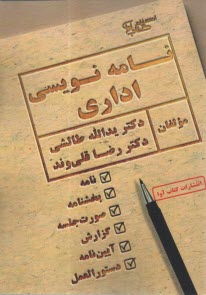 نامه نویسی
اداری
مؤلفان:
دکتر یدالله طالشی
دکتر رضا قلی‌وند
نامه
بخشنامه
صورت‌جلسه
گزارش
آیین‌نامه
دستورالعمل
انتشارات کتاب آوا